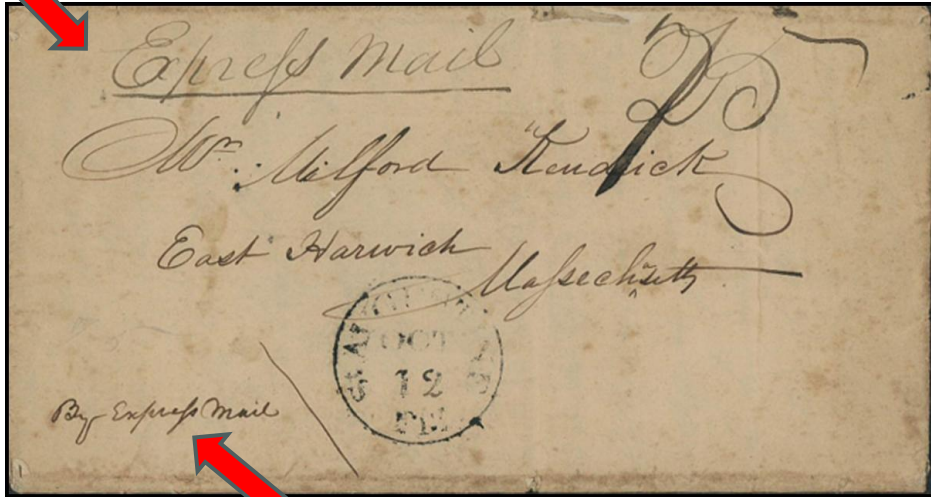 Expreſs Mail
25
Mr. Milford Kendrick
East Harwich
Maſsechusetts
OCT
12
By Expreſs Mail